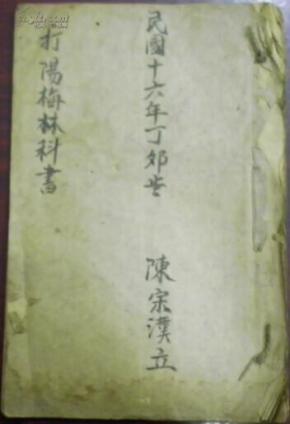 民國十六年丁卯岁
陳宗漢立
打陽梅林科書